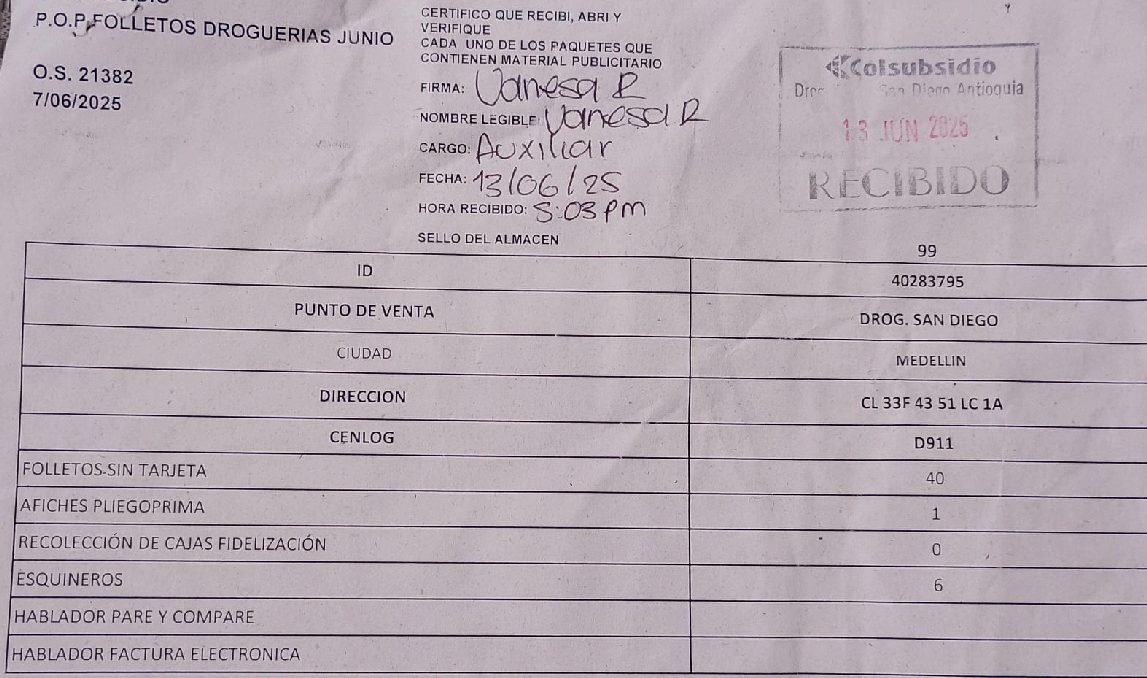 P.O.P FOLLETOS DROGUERIAS JUNIO
O.S. 21382
7/06/2025
CERTIFICO QUE RECIBI, ABRI Y
VERIFIQUE
CADA UNO DE LOS PAQUETES QUE
CONTIENEN MATERIAL PUBLICITARIO
FIRMA: Vanesa R
NOMBRE LEGIBLE: Vanesa R
CARGO: Auxiliar
FECHA: 13/06/25
HORA RECIBIDO: 5:03 pm
SELLO DEL ALMACEN
Colsubsidio
San Diego Antioquia
13 JUN 2025
RECIBIDO
99
ID 40283795
PUNTO DE VENTA DROG. SAN DIEGO
CIUDAD MEDELLIN
DIRECCION CL 33F 43 51 LC 1A
CENLOG D911
FOLLETOS SIN TARJETA 40
AFICHES PLIEGOPRIMA 1
RECOLECCIÓN DE CAJAS FIDELIZACIÓN 0
ESQUINEROS 6
HABLADOR PARE Y COMPARE
HABLADOR FACTURA ELECTRONICA